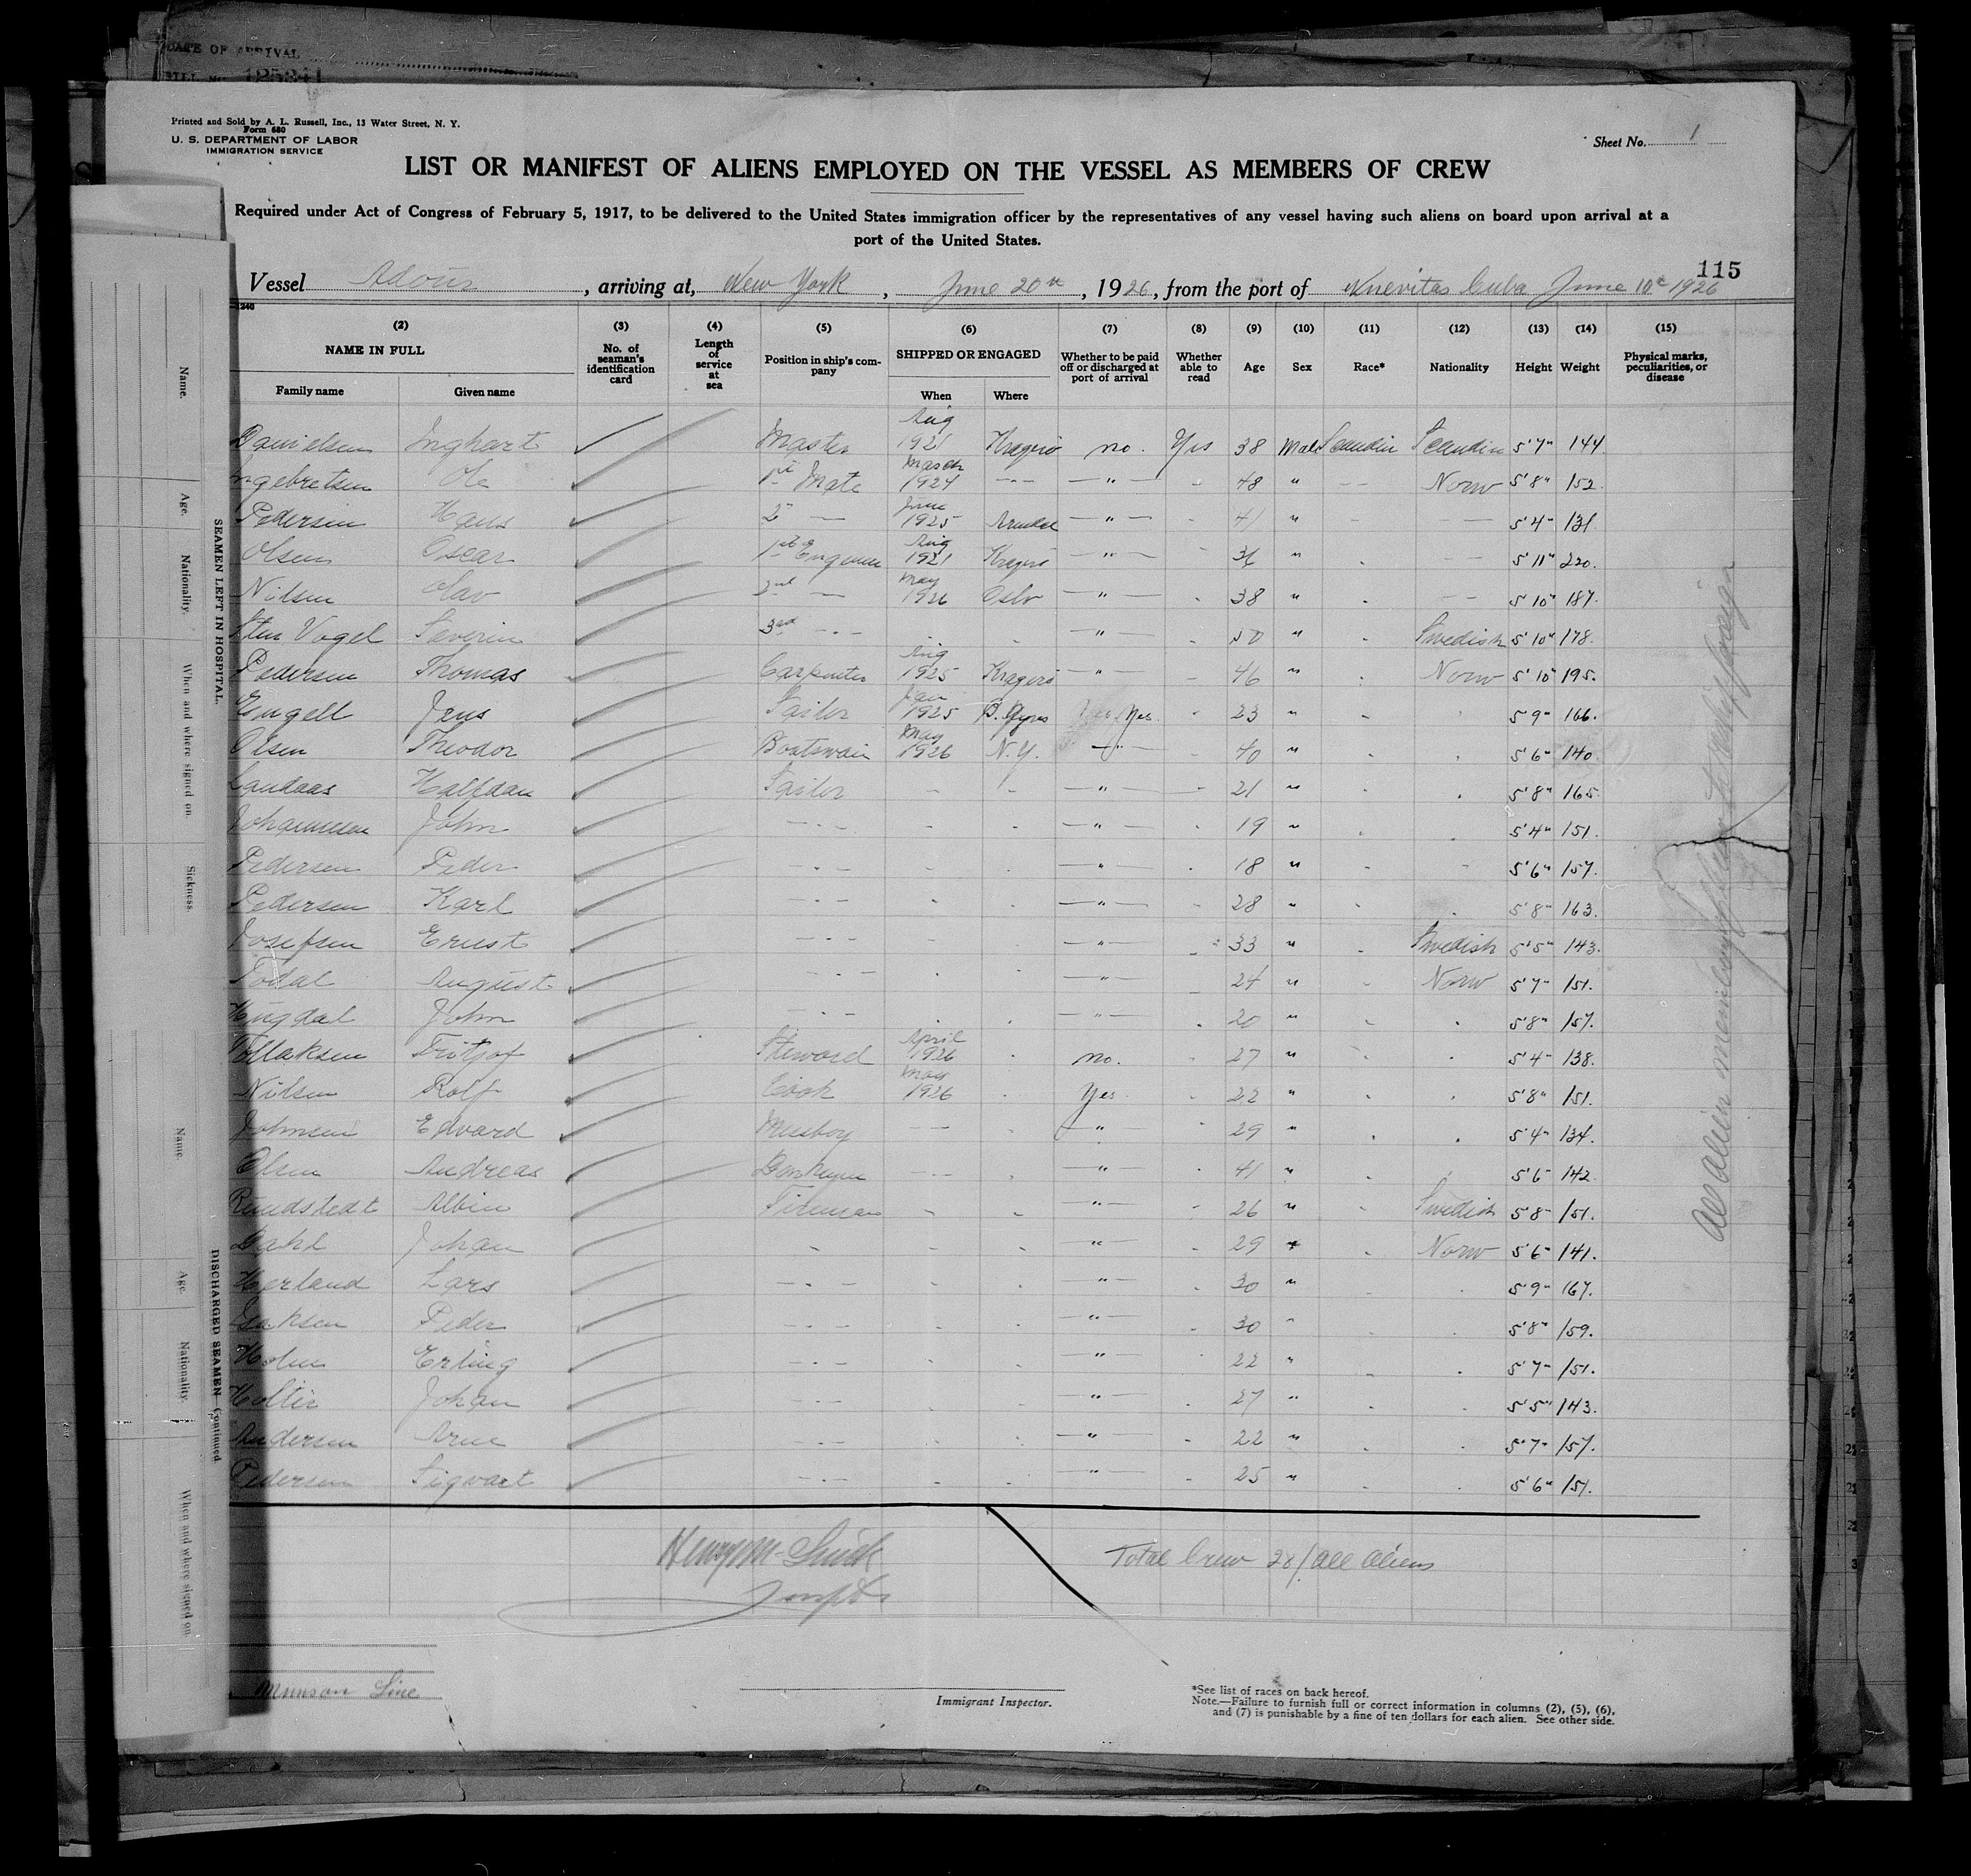 DATE OF ARRIVAL
Printed and Sold by A. L. Russell, Inc., 13 Water Street, N. Y.
Form 680
U. S. DEPARTMENT OF LABOR
IMMIGRATION SERVICE
Sheet No. 1
LIST OR MANIFEST OF ALIENS EMPLOYED ON THE VESSEL AS MEMBERS OF CREW
Required under Act of Congress of February 5, 1917, to be delivered to the United States immigration officer by the representatives of any vessel having such aliens on board upon arrival at a
port of the United States.
115
Vessel Adour, arriving at, New York, June 20th, 1926, from the port of Nuevitas Cuba June 10th 1926
1240
(2) (3) (4) (5) (6) (7) (8) (9) (10) (11) (12) (13) (14) (15)
NAME IN FULL
Family name Given name
No. of seaman's identification card
Length of service at sea
Position in ship's company
SHIPPED OR ENGAGED
When Where
Whether to be paid off or discharged at port of arrival
Whether able to read
Age Sex Race* Nationality Height Weight
Physical marks, peculiarities, or disease
Danielsen Inghart Master Aug 1921 Kragerö no. Yes 38 Male Scandin Scandin 5'7" 144
Ingebretsen Ole 1st Mate March 1924 --- " - 48 " -- Norw 5'8" 152.
Pedersen Hans 2 — June 1925 Arendal " - 41 " - — 5'4" 131
Olsen Oscar 1st Engineer Aug 1921 Kragerö " - 36 " - -- 5'11" 220.
Nilsen Olav 2nd — May 1926 Oslo " - 38 " - -- 5'10" 187.
Sten Vogel Severin 3rd --- - - " - 50 " - Swedish 5'10" 178.
Pedersen Thomas Carpenter Aug 1925 Kragerö " - 46 " - Norw 5'10" 195.
Engell Jens Sailor Jan 1925 B. Ayres Yes - 23 " - - 5'9" 166.
Olsen Theodor Boatswain May 1926 N.Y. " - 40 " - - 5'6" 140.
Landaas Halfdan Sailor - - " - 21 " - - 5'8" 165.
Johannesen John --- - - " - 19 " - - 5'4" 151.
Pedersen Peder --- - - " - 18 " - - 5'6" 157.
Pedersen Karl --- - - " - 28 " - - 5'8" 163.
Josefsen Ernest --- - - " - 33 " - Swedish 5'5" 143.
Todal August --- - - " - 24 " - Norw 5'7" 151.
Hugdal John --- - - " - 20 " - - 5'8" 157.
Tollaksen Fritjof Steward April 1926 - no. - 27 " - - 5'4" 138.
Nilsen Rolf Cook May 1926 - Yes - 22 " - - 5'8" 151.
Johnsen Edvard Messboy -- - " - 29 " - - 5'4" 134.
Olsen Andreas Donkeyman --- - " - 41 " - - 5'6" 142
Rundstedt Albin Fireman - - " - 26 " - Swedish 5'8" 151.
Dahl Johan - - - " - 29 " - Norw 5'6" 141.
Herland Lars --- - - " - 30 " - - 5'9" 167.
Isaksen Peder --- - - " - 30 " - - 5'8" 159.
Holm Erling --- - - " - 22 " - - 5'7" 151.
Holter Johan --- - - " - 27 " - - 5'5" 143.
Andersen Arne --- - - " - 22 " - - 5'7" 157.
Pedersen Sigvart --- - - " - 25 " - - 5'6" 151.
Total Crew 28/ All Aliens
Munson Line
Immigrant Inspector.
*See list of races on back hereof.
Note.—Failure to furnish full or correct information in columns (2), (5), (6),
and (7) is punishable by a fine of ten dollars for each alien. See other side.
SEAMEN LEFT IN HOSPITAL.
Name. Age. Nationality. When and where signed on. Sickness.
DISCHARGED SEAMEN—Continued
Name. Age. Nationality. When and where signed on.